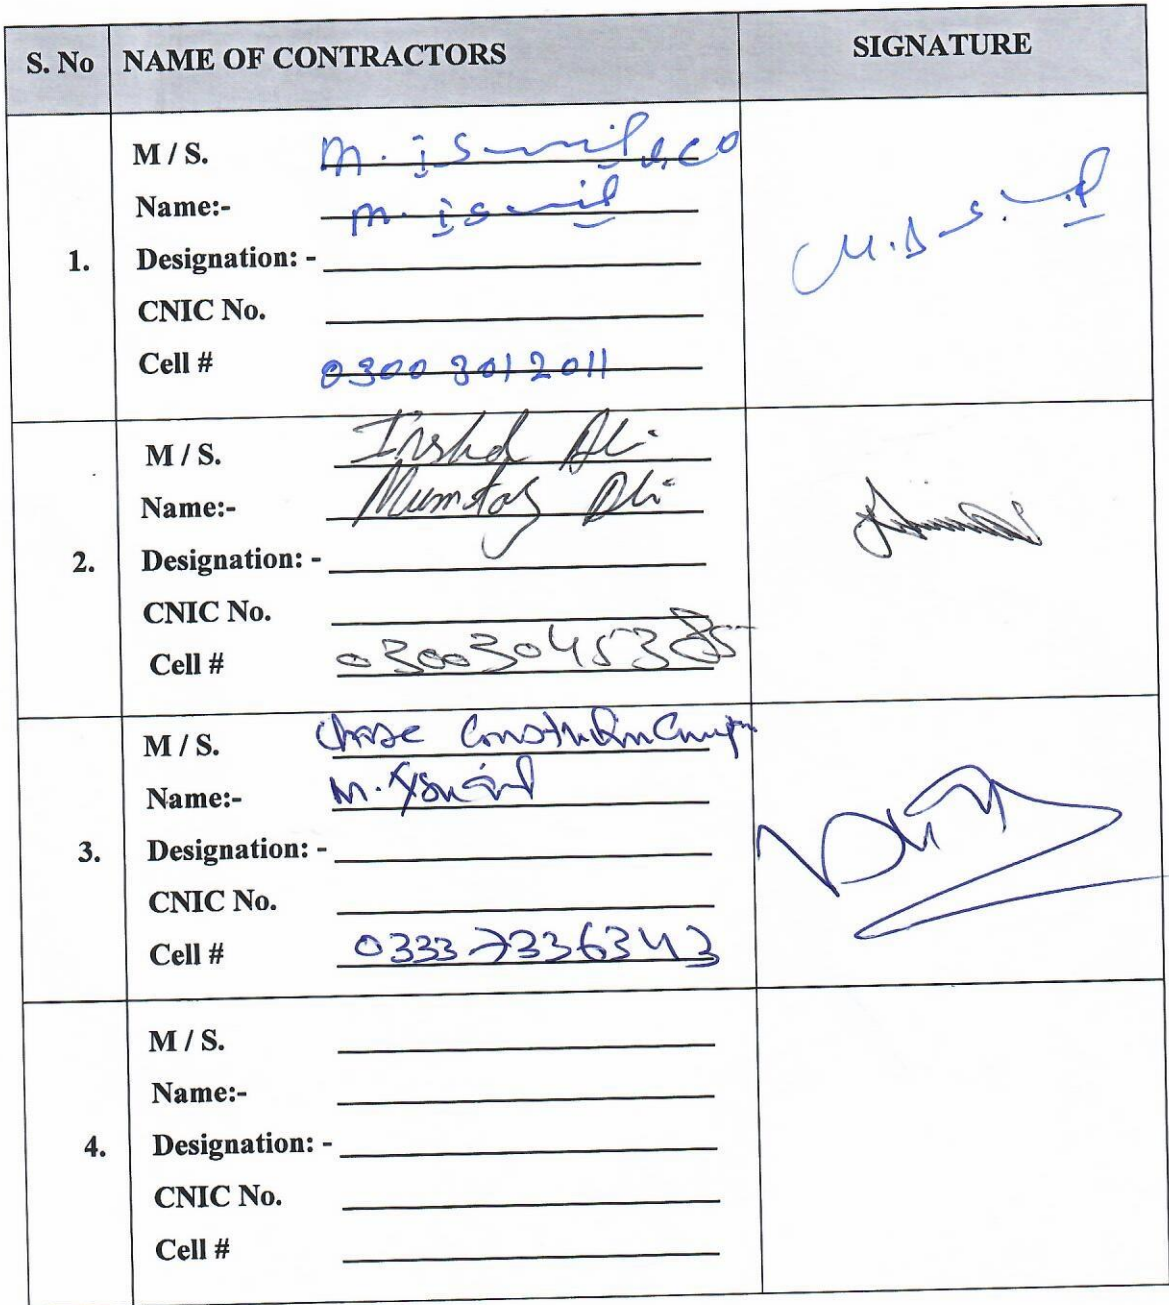 S. No NAME OF CONTRACTORS SIGNATURE
1.
M / S. M. ismil & co
Name:- M. ismil
Designation: -
CNIC No.
Cell # 0300 3012011
2.
M / S. Irshd Ali
Name:- Mumtaz Ali
Designation: -
CNIC No.
Cell # 03003045385
3.
M / S. Construction
Name:- M.
Designation: -
CNIC No.
Cell # 0333 7336343
4.
M / S.
Name:-
Designation: -
CNIC No.
Cell #